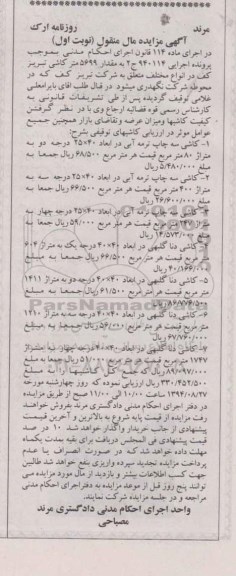 مرند روزنامه ارک
آگهی مزایده مال منقول (نوبت اول)
در اجرای ماده ۱۱۴ قانون اجرای احکام مدنی بموجب
پرونده اجرایی ۹۴۰۱۱۴ ج۲ به مقدار ۵۶۹۹ متر کاشی تبریز
کف در انواع مختلف متعلق به شرکت تبریز کف که در
محوطه شرکت نگهداری میشود در قبال طلب آقای بابرامعلی
غلامی توقیف گردیده پس از طی تشریفات قانونی به
کارشناس رسمی قوه قضائیه ارجاع وی با در نظر گرفتن
کیفیت کاشیها ومیزان عرضه وتقاضای بازار همچنین جمیع
عوامل موثر در ارزیابی کاشیهای توقیفی بشرح:
۱- کاشی سه چاپ ترمه آبی در ابعاد ۴۰×۲۵ درجه دو به
متراژ ۸۰ متر مربع قیمت هر متر مربع ۶۸/۵۰۰ ریال جمعا به
مبلغ ۵/۴۸۰/۰۰۰ ریال
۲-کاشی سه چاپ ترمه آبی در ابعاد ۴۰×۲۵ درجه سه به
متراژ ۴۰۰ متر مربع قیمت هر متر مربع ۶۶/۵۰۰ ریال جمعا به
مبلغ ۲۶/۶۰۰/۰۰۰ ریال
۳-کاشی سه چاپ ترمه آبی در ابعاد ۴۰×۲۵ درجه چهار به
متراژ ۲۴۷ متر مربع قیمت هر متر مربع ۵۹/۰۰۰ ریال جمعا به
مبلغ ۱۴/۵۷۳/۰۰۰ ریال
۴- کاشی دنا گلبهی در ابعاد ۴۰×۴۰ درجه یک به متراژ ۶۰۴
متر مربع قیمت هر متر مربع ۶۶/۵۰۰ ریال جمعا به مبلغ
۴۰/۱۶۶/۰۰۰ ریال
۵- کاشی دنا گلبهی در ابعاد ۴۰×۴۰ درجه دو به متراژ ۱۴۱۱
متر مربع قیمت هر متر مربع ۶۱/۵۰۰ ریال جمعا به مبلغ
ریال
۶- کاشی دنا گلبهی در ابعاد ۴۰×۴۰ درجه سه به متراژ ۱۲۱۰
متر مربع قیمت هر متر مربع ۵۶/۰۰۰ ریال جمعا به مبلغ
۶۷/۷۶۰/۰۰۰ ریال
۷- کاشی دنا گلبهی در ابعاد ۴۰×۴۰ درجه چهار به متراژ
۱۷۴۷ متر مربع قیمت هر متر مربع ۵۱/۰۰۰ ریال جمعا به مبلغ
۸۹/۰۹۷/۰۰۰ ریال که جمع کل کاشیها را به مبلغ
۳۳۰/۴۵۲/۵۰۰ ریال ارزیابی نموده که روز چهارشنبه مورخه
۱۳۹۴/۰۸/۲۷ ساعت ۱۰/۰۰ الی ۱۱/۰۰ صبح از طریق مزایده
در دفتر اجرای احکام مدنی دادگستری مرند بفروش خواهند
رفت مزایده از قیمت پایه شروع به بالاترین و آخرین قیمت
پیشنهادی از جانب خریدار واگذار خواهد شد ۱۰ در صد
قیمت پیشنهادی فی المجلس دریافت برای بقیه بمدت یکماه
مهلت داده خواهد شد که در صورت انصراف یا عدم
پرداخت مزایده تجدید سپرده واریزی بنفع خواهد شد طالبین
جهت کسب اطلاعات بیشتر و بازدید از مال مورد مزایده می
توانند پنج روز قبل از موعد مزایده به دفتر اجرای احکام مدنی
مراجعه و در جلسه مزایده شرکت نمایند.
واحد اجرای احکام مدنی دادگستری مرند
مصباحی